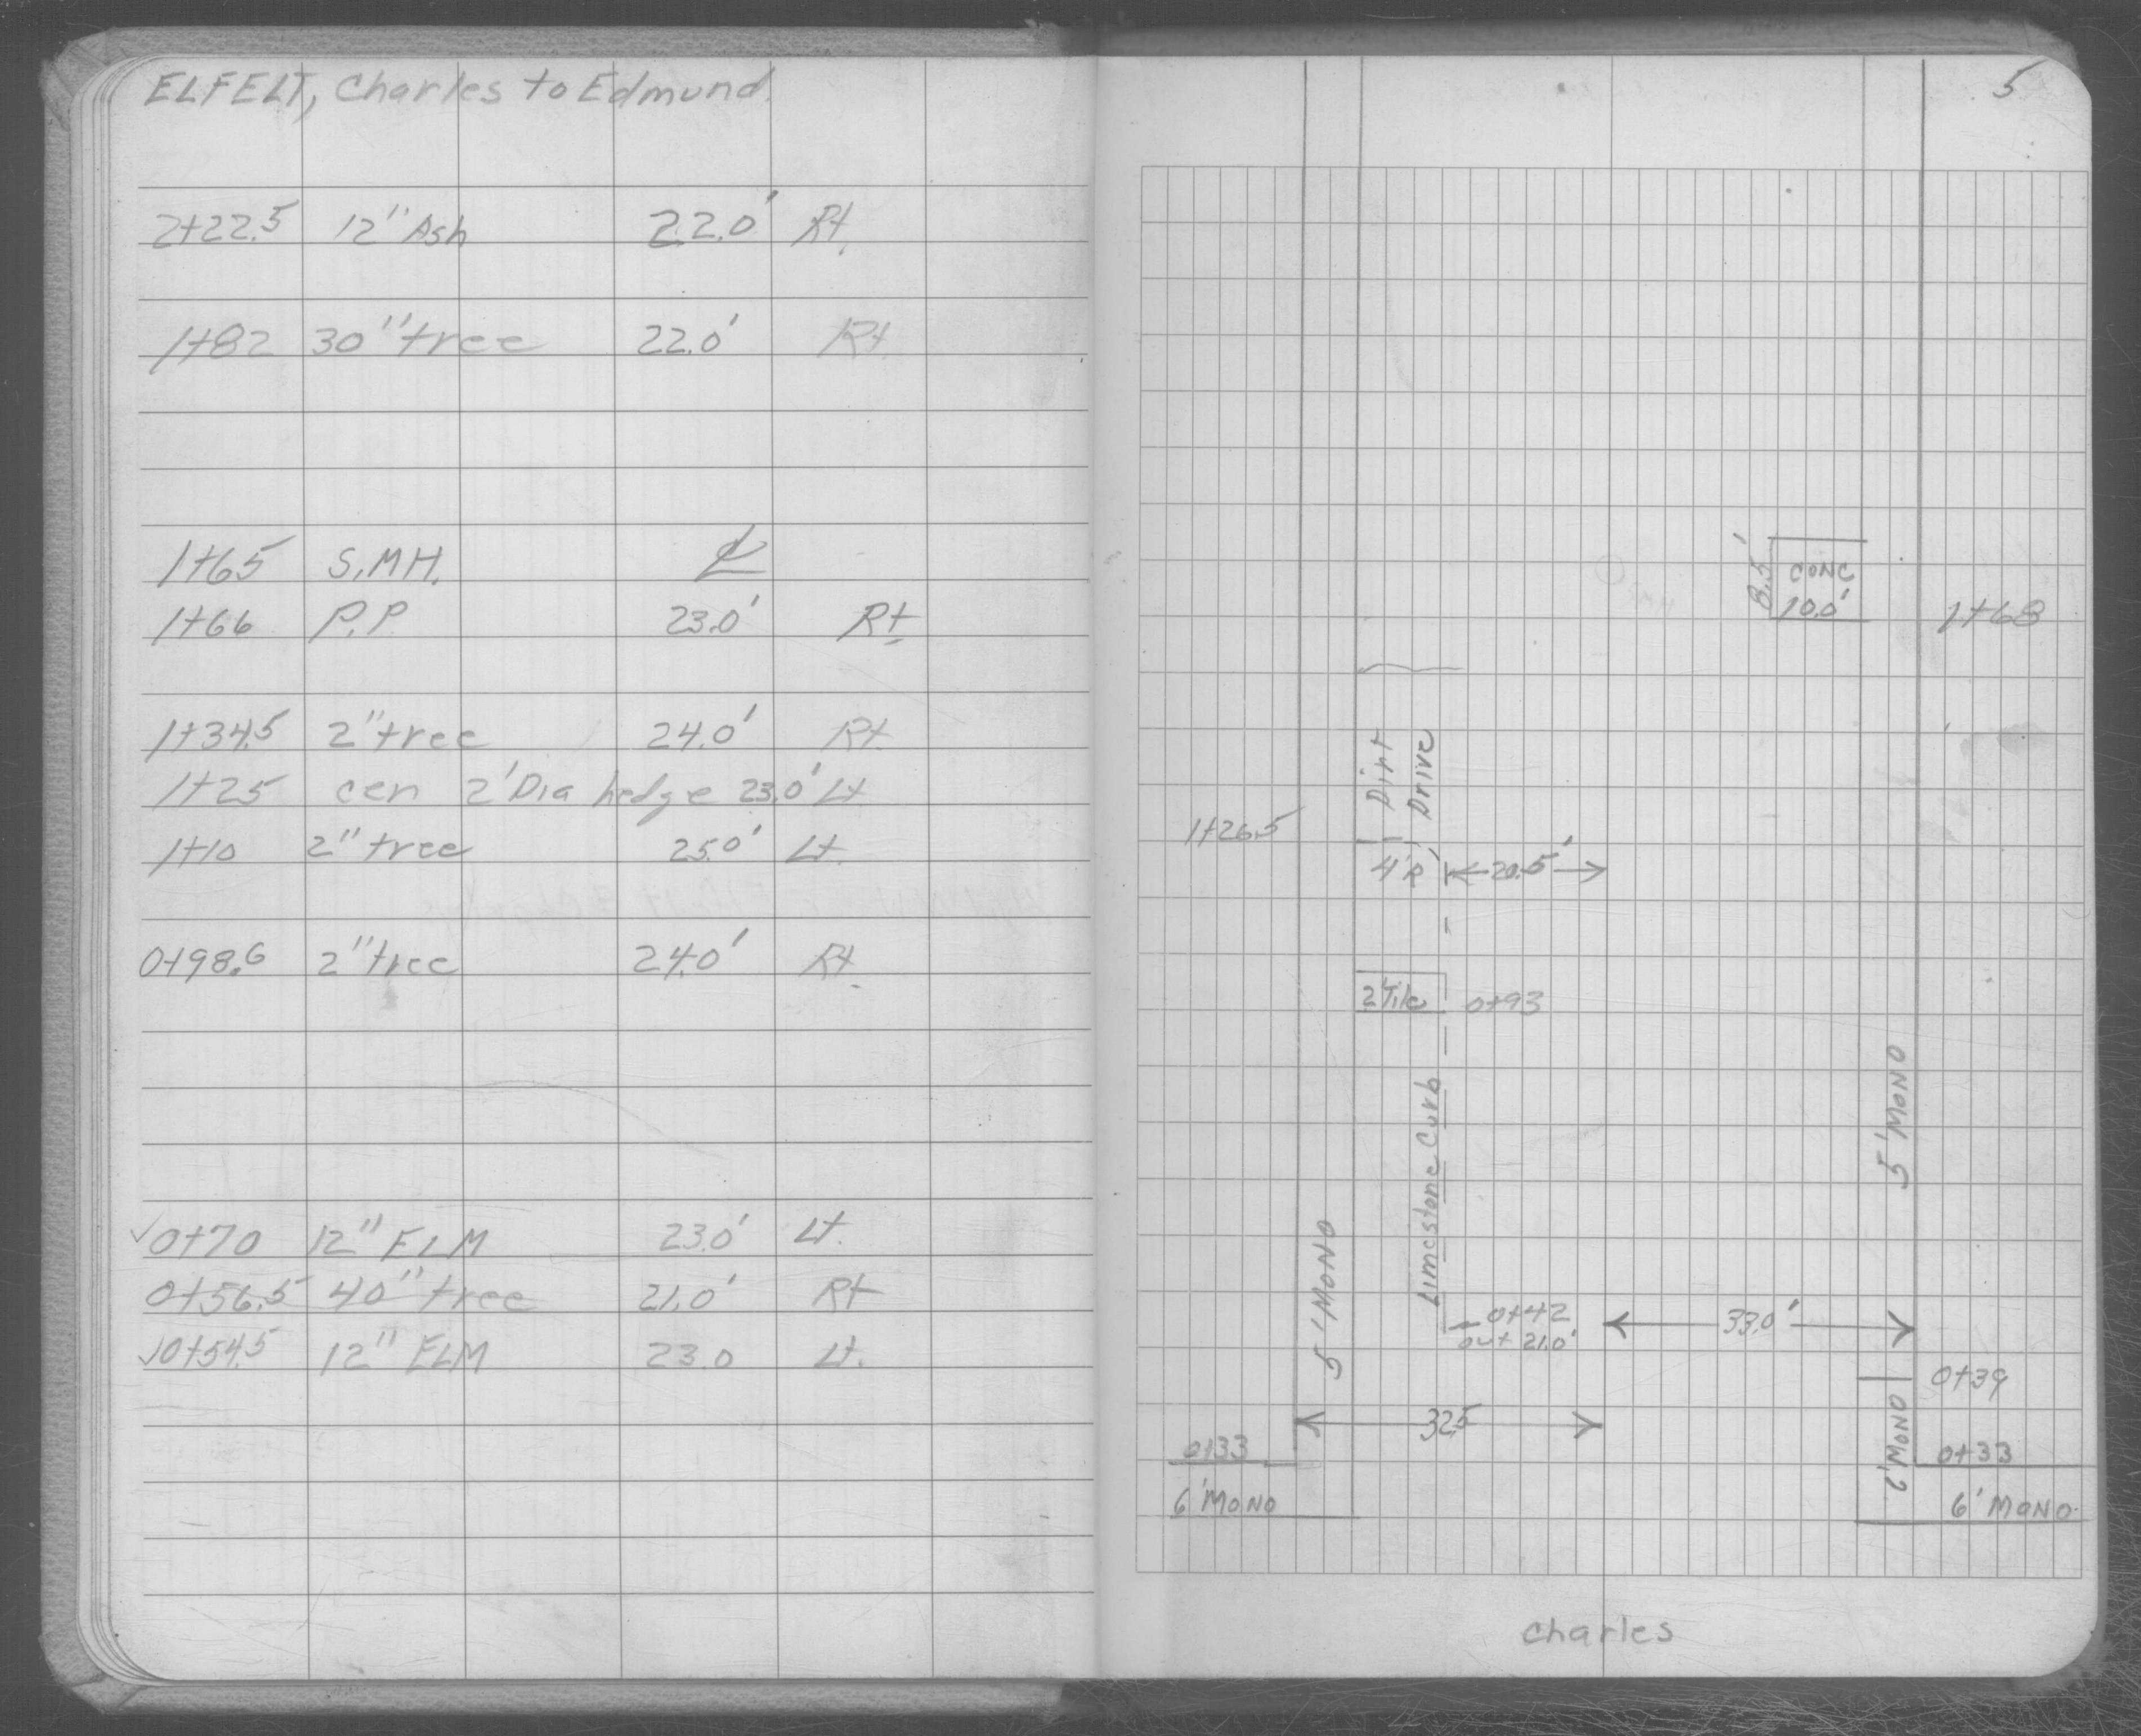 ELFELT, Charles to Edmund.
2+22.5 12" Ash 22.0' Rt.
1+82 30" tree 22.0' Rt.
1+65 S.MH. ℄
1+66 P.P. 23.0' Rt.
1+34.5 2" tree 24.0' Rt.
1+25 cen 2' Dia hedge 23.0' Lt
1+10 2" tree 25.0' Lt.
0+98.6 2" tree 24.0' Rt.
✓0+70 12" ELM 23.0' Lt.
0+56.5 40" tree 21.0' Rt
✓0+54.5 12" ELM 23.0 Lt.
5
8.5'
CONC
10.0'
1+68
Dirt
Drive
1+26.5
4'R
20.5'
2'Tile
0+93
Limestone Curb
5' MONO
5' MONO
0+42
out 21.0'
33.0'
0+39
32.5
0+33
6' MONO
6' MONO
0+33
6' MONO
Charles